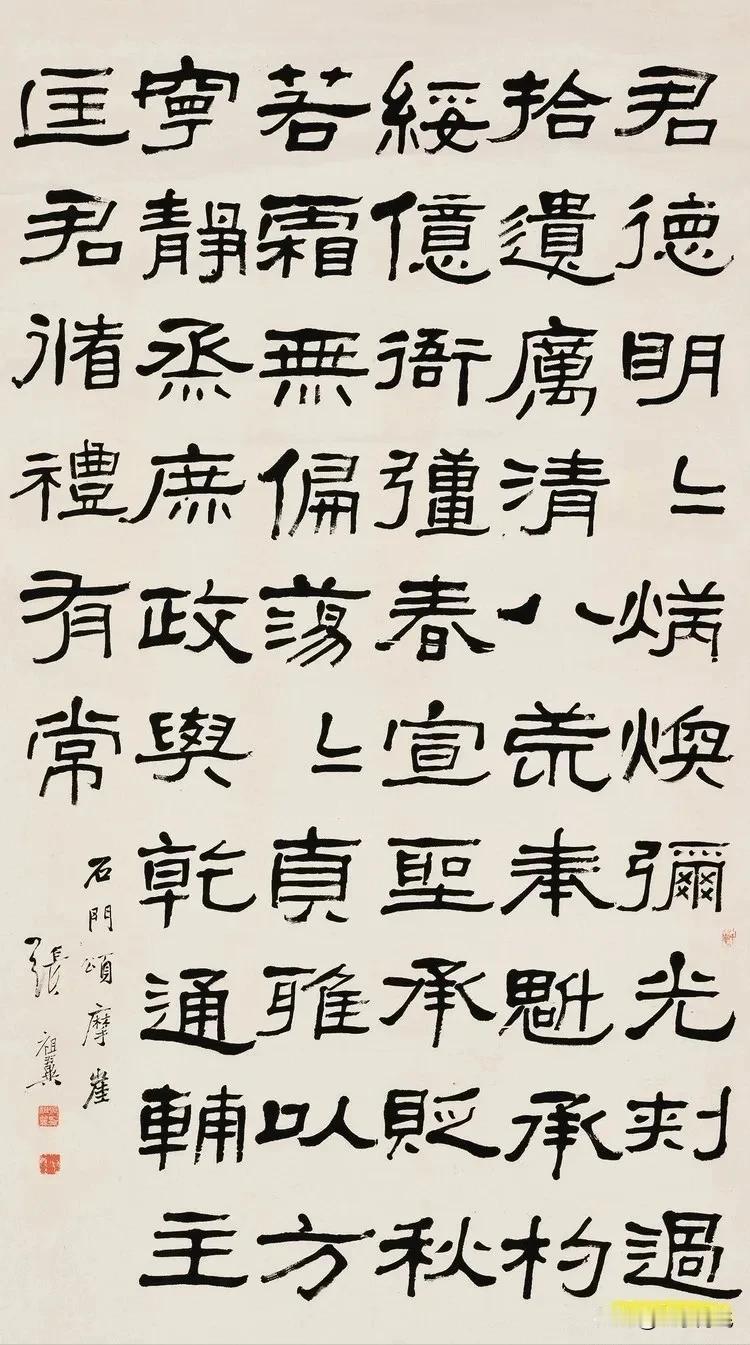 君德明〻炳煥彌光刺過
拾遺厲清八荒奉魁承杓
綏億衙彊春宣聖承貶秋
若霜無偏蕩〻貞雅以方
寧靜烝庶政與乾通輔主
匡君脩禮有常
石門頌摩崖
張祖翼